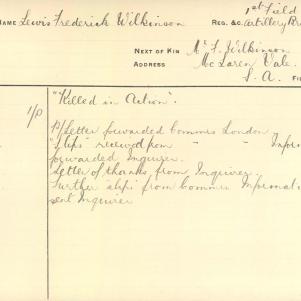 1st Field
NAME Lewis Frederick Wilkinson REGT. &C. Artillery Br
NEXT OF KIN Mr F. Wilkinson
ADDRESS McLaren Vale.
S. A. FI
"Killed in Action".
1/0
Letter forwarded Commrs London
"Slips" received from " " Inform
forwarded Inquirer.
Letter of thanks from Inquirer
Further slips from Commrs Informati
sent Inquirer